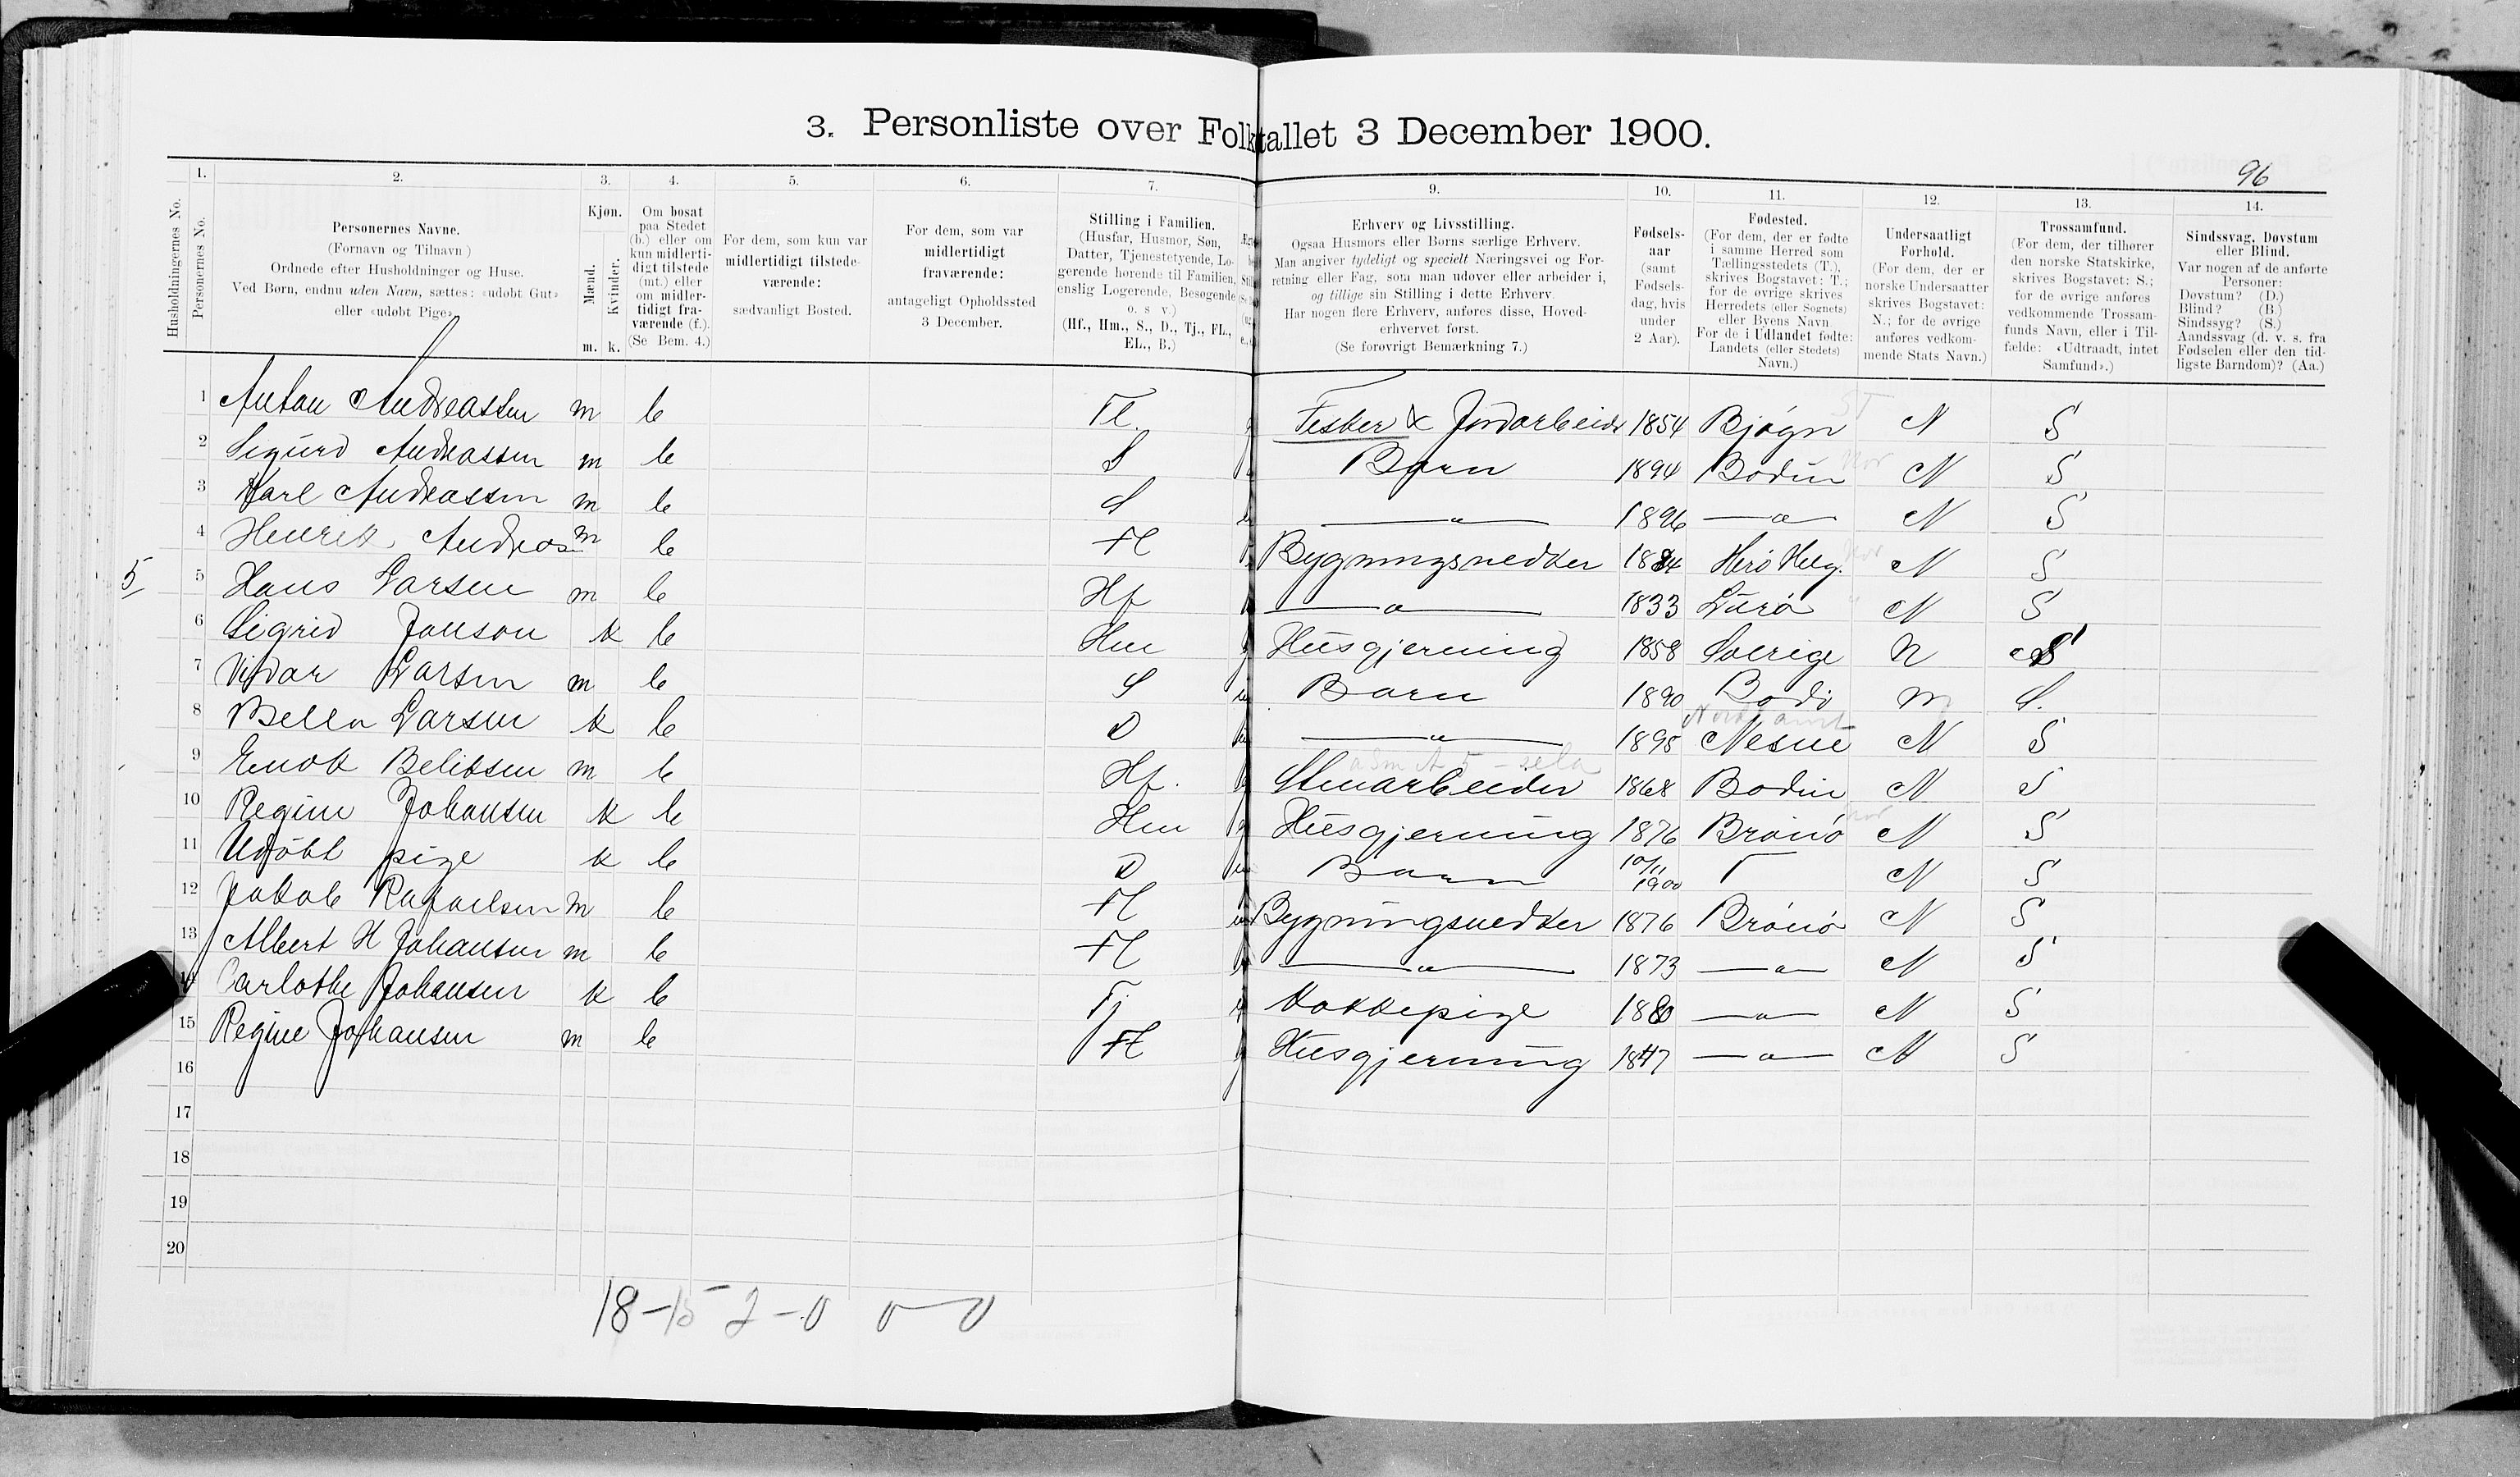 3. Personliste over Folketallet 3 December 1900.
96
1. 2. 3. 4. 5. 6. 7. 9. 10. 11. 12. 13. 14.
Husholdningernes No.
Personernes No.
Personernes Navne.
(Fornavn og Tilnavn)
Ordnede efter Husholdninger og Huse.
Ved Børn, endnu uden Navn, sættes: «udøbt Gut»
eller «udøbt Pige».
Kjøn.
Mænd.
Kvinder.
m. k.
Om bosat
paa Stedet
(b.) eller om
kun midlerti-
digt tilstede
(mt.) eller
om midler-
tidigt fra-
værende (f.).
(Se Bem. 4.)
For dem, som kun var
midlertidigt tilstede-
værende:
sædvanligt Bosted.
For dem, som var
midlertidigt
fraværende:
antageligt Opholdssted
3 December.
Stilling i Familien.
(Husfar, Husmor, Søn,
Datter, Tjenestetyende, Lo-
gerende hørende til Familien,
enslig Logerende, Besøgende
o. s v.)
(Hf., Hm., S., D., Tj., FL.,
EL., B.)
Erhverv og Livsstilling.
Ogsaa Husmors eller Børns særlige Erhverv.
Man angiver tydeligt og specielt Næringsvei og For-
retning eller Fag, som man udøver eller arbeider i,
og tillige sin Stilling i dette Erhverv.
Har nogen flere Erhverv, anføres disse, Hoved-
erhvervet først.
(Se forøvrigt Bemærkning 7.)
Fødsels-
aar
(samt
Fødsels-
dag, hvis
under
2 Aar).
Fødested.
(For dem, der er fødte
i samme Herred som
Tællingsstedets (T.),
skrives Bogstavet: T.;
for de øvrige skrives
Herredets (eller Sognets)
eller Byens Navn.
For de i Udlandet fødte:
Landets (eller Stedets)
Navn.)
Undersaatligt
Forhold.
(For dem, der er
norske Undersaatter
skrives Bogstavet:
N.; for de øvrige
anføres vedkom-
mende Stats Navn.)
Trossamfund.
(For dem, der tilhører
den norske Statskirke,
skrives Bogstavet: S.;
for de øvrige anføres
vedkommende Trossam-
funds Navn, eller i Til-
fælde: «Udtraadt, intet
Samfund».)
Sindssvag, Døvstum
eller Blind.
Var nogen af de anførte
Personer:
Døvstum? (D.)
Blind? (B.)
Sindssyg? (S.)
Aandssvag (d. v. s. fra
Fødselen eller den tid-
ligste Barndom)? (Aa.)
1 Anton Andreassen m b Fl. Fisker & Jordarbeider 1854 Bjøgn N S
2 Sigurd Andreassen m b S Barn 1894 Bodin N S
3 Karl Andreassen m b S —"— 1896 —"— N S
4 Henrik Andreas m b Fl Bygningsnedker 1884 Herø Helg. N S
5 5 Hans Larsen m b Hf —"— 1833 Lurø N S
6 Sigrid Jonson k b Hm Husgjerning 1858 Sverige N S
7 Vidar Larsen m b S Barn 1890 Bodø N S.
8 Bella Larsen k b D —"— 1895 Nesne N S
9 Enok Beliksen m b Hf. Stenarbeider 1868 Bodin N S
10 Regine Johansen k b Hm Husgjerning 1876 Brønø N S
11 Udøbt pige k b D Barn 10/11 1900 T N S
12 Jakob Rafaelsen m b Fl Bygningsnedker 1876 Brønø N S
13 Albert H Johansen m b Fl —"— 1873 —"— N S
14 Carlothe Johansen k b Tj Kokkepige 1880 —"— N S
15 Regine Johansen m b Fl Husgjerning 1847 —"— N S
16
17
18
19
20
18-15 2-0 0-0